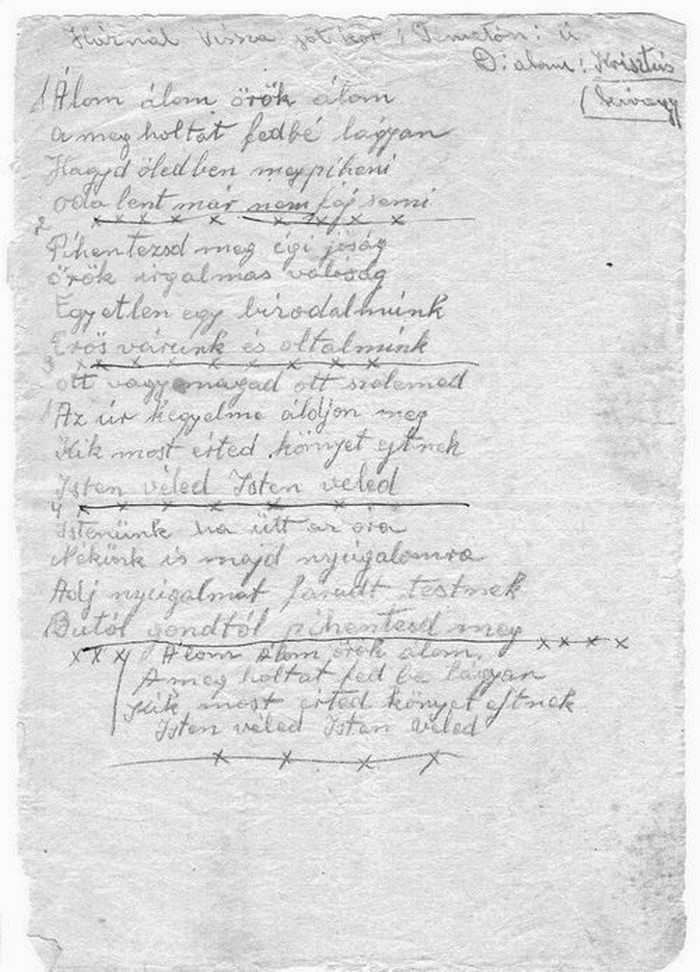 Háznál vissza jöt kor! Temetőn: ü
D: alam: Krisztús
(kivagy
1 Álom álom örök álom
a meg holtat fedbé lágyan
Hagyd öledben megpiheni
oda lent már nem fáj semi
2
Pihentezsd meg égi jóság
örök irgalmas valóság
Egyetlen egy birodalmúnk
Erös várúnk és oltalmink
3
ott vagy magad ott szelemed
Az úr kegyelme áldjon meg
Kik most érted könyet ejtnek
Isten véled Isten veled
4
Istenünk ha ütt az óra
Nékünk is majd nyúgalomra
Adj nyúgalmat faradt testnek
Bútól gondtól pihentesd meg
Álom álom örök álom,
A meg holtat fed be lágyan
Kik most érted könyet ejtnek
Isten véled Isten veled